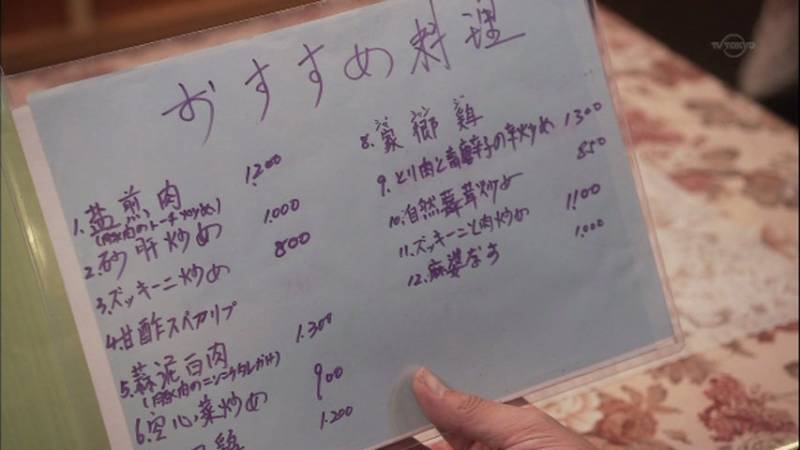 おすすめ料理
1.塩煎肉 1.200
(豚肉のトーチ炒め)
2.砂肝炒め 1.000
3.ズッキーニ炒め 800
4.甘酢スペアリブ
5.蒜泥白肉 1.300
(豚肉のニンニクタレがけ)
6.空心菜炒め 900
鶏 1.200
8.家郷鶏
9.とり肉と唐辛子の辛炒め 1300
10.自然茸炒め 850
11.ズッキーニと肉炒め 1.100
12.麻婆なす 1.000
TV TOKYO